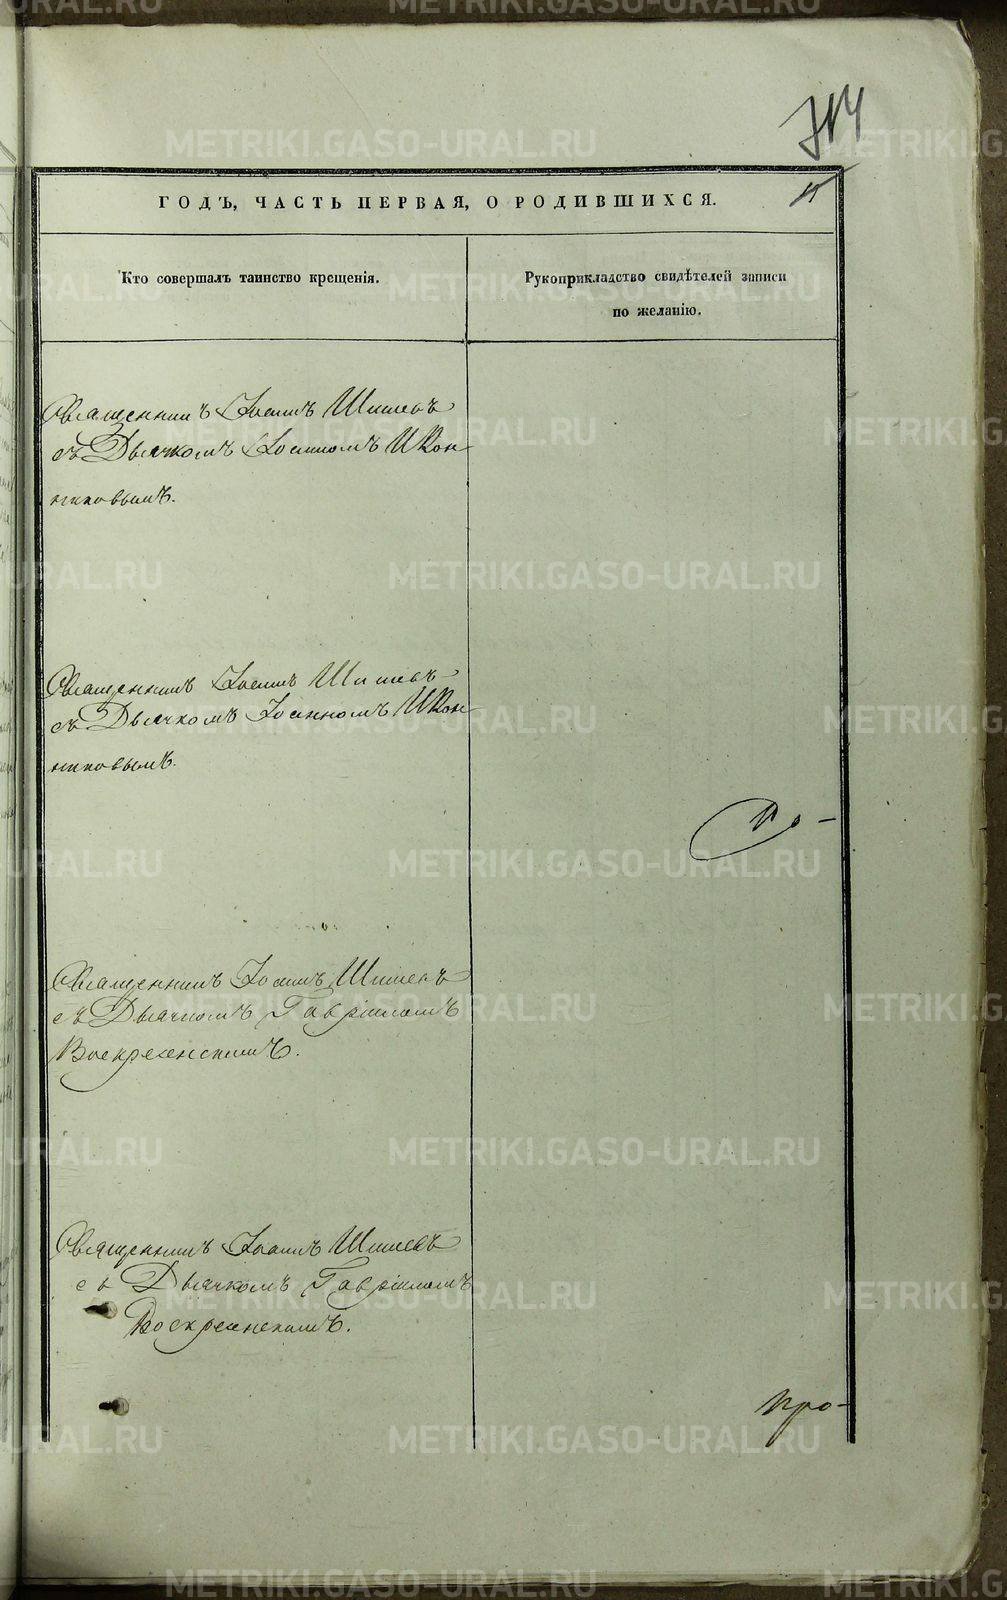 314
11
ГОДЪ, ЧАСТЬ ПЕРВАЯ, О РОДИВШИХСЯ.
Кто совершалъ таинство крещенія.
Рукоприкладство свидѣтелей записи
по желанію.
Священникъ Іоаннъ Шишевъ
съ Дьячкомъ Іоанномъ Икон-
никовымъ.
Священникъ Іоаннъ Шишевъ
съ Дьячкомъ Іоанномъ Икон-
никовымъ.
Священникъ Іоаннъ Шишевъ
съ Дьячкомъ Гавріиломъ
Воскресенскимъ.
Священникъ Іоаннъ Шишевъ
съ Дьячкомъ Гавріиломъ
Воскресенскимъ.
Про-
METRIKI.GASO-URAL.RU